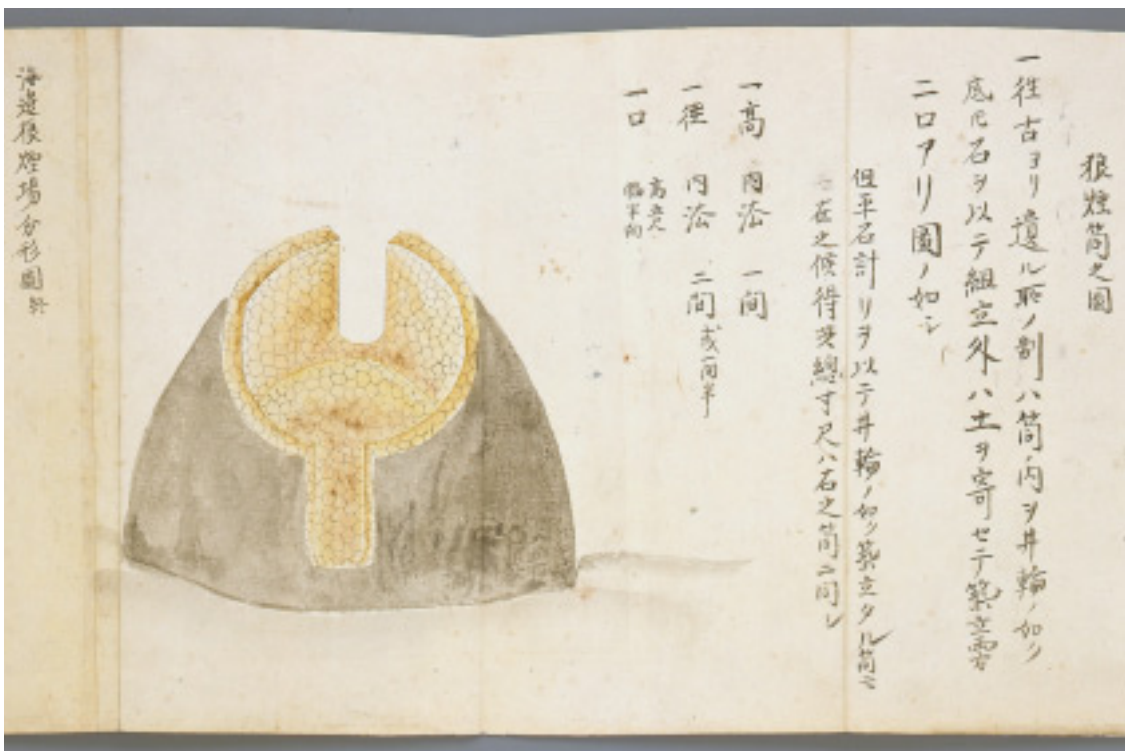 狼煙筒之圖
一往古ヨリ遺ル所ノ割ハ筒ノ内ヲ井輪ノ如ク
底凡石ヲ以テ組立外ハ土ヲ寄セテ築立雨方
二口アリ圖ノ如シ
但平石計リヲ以テ井輪ノ如ク築立タル筒モ
在之候得共總寸尺ハ石之筒ニ同シ
一高 内法 一間
一徑 内法 二間 或一間半
一口 高五尺
海邉狼煙場分形圖終